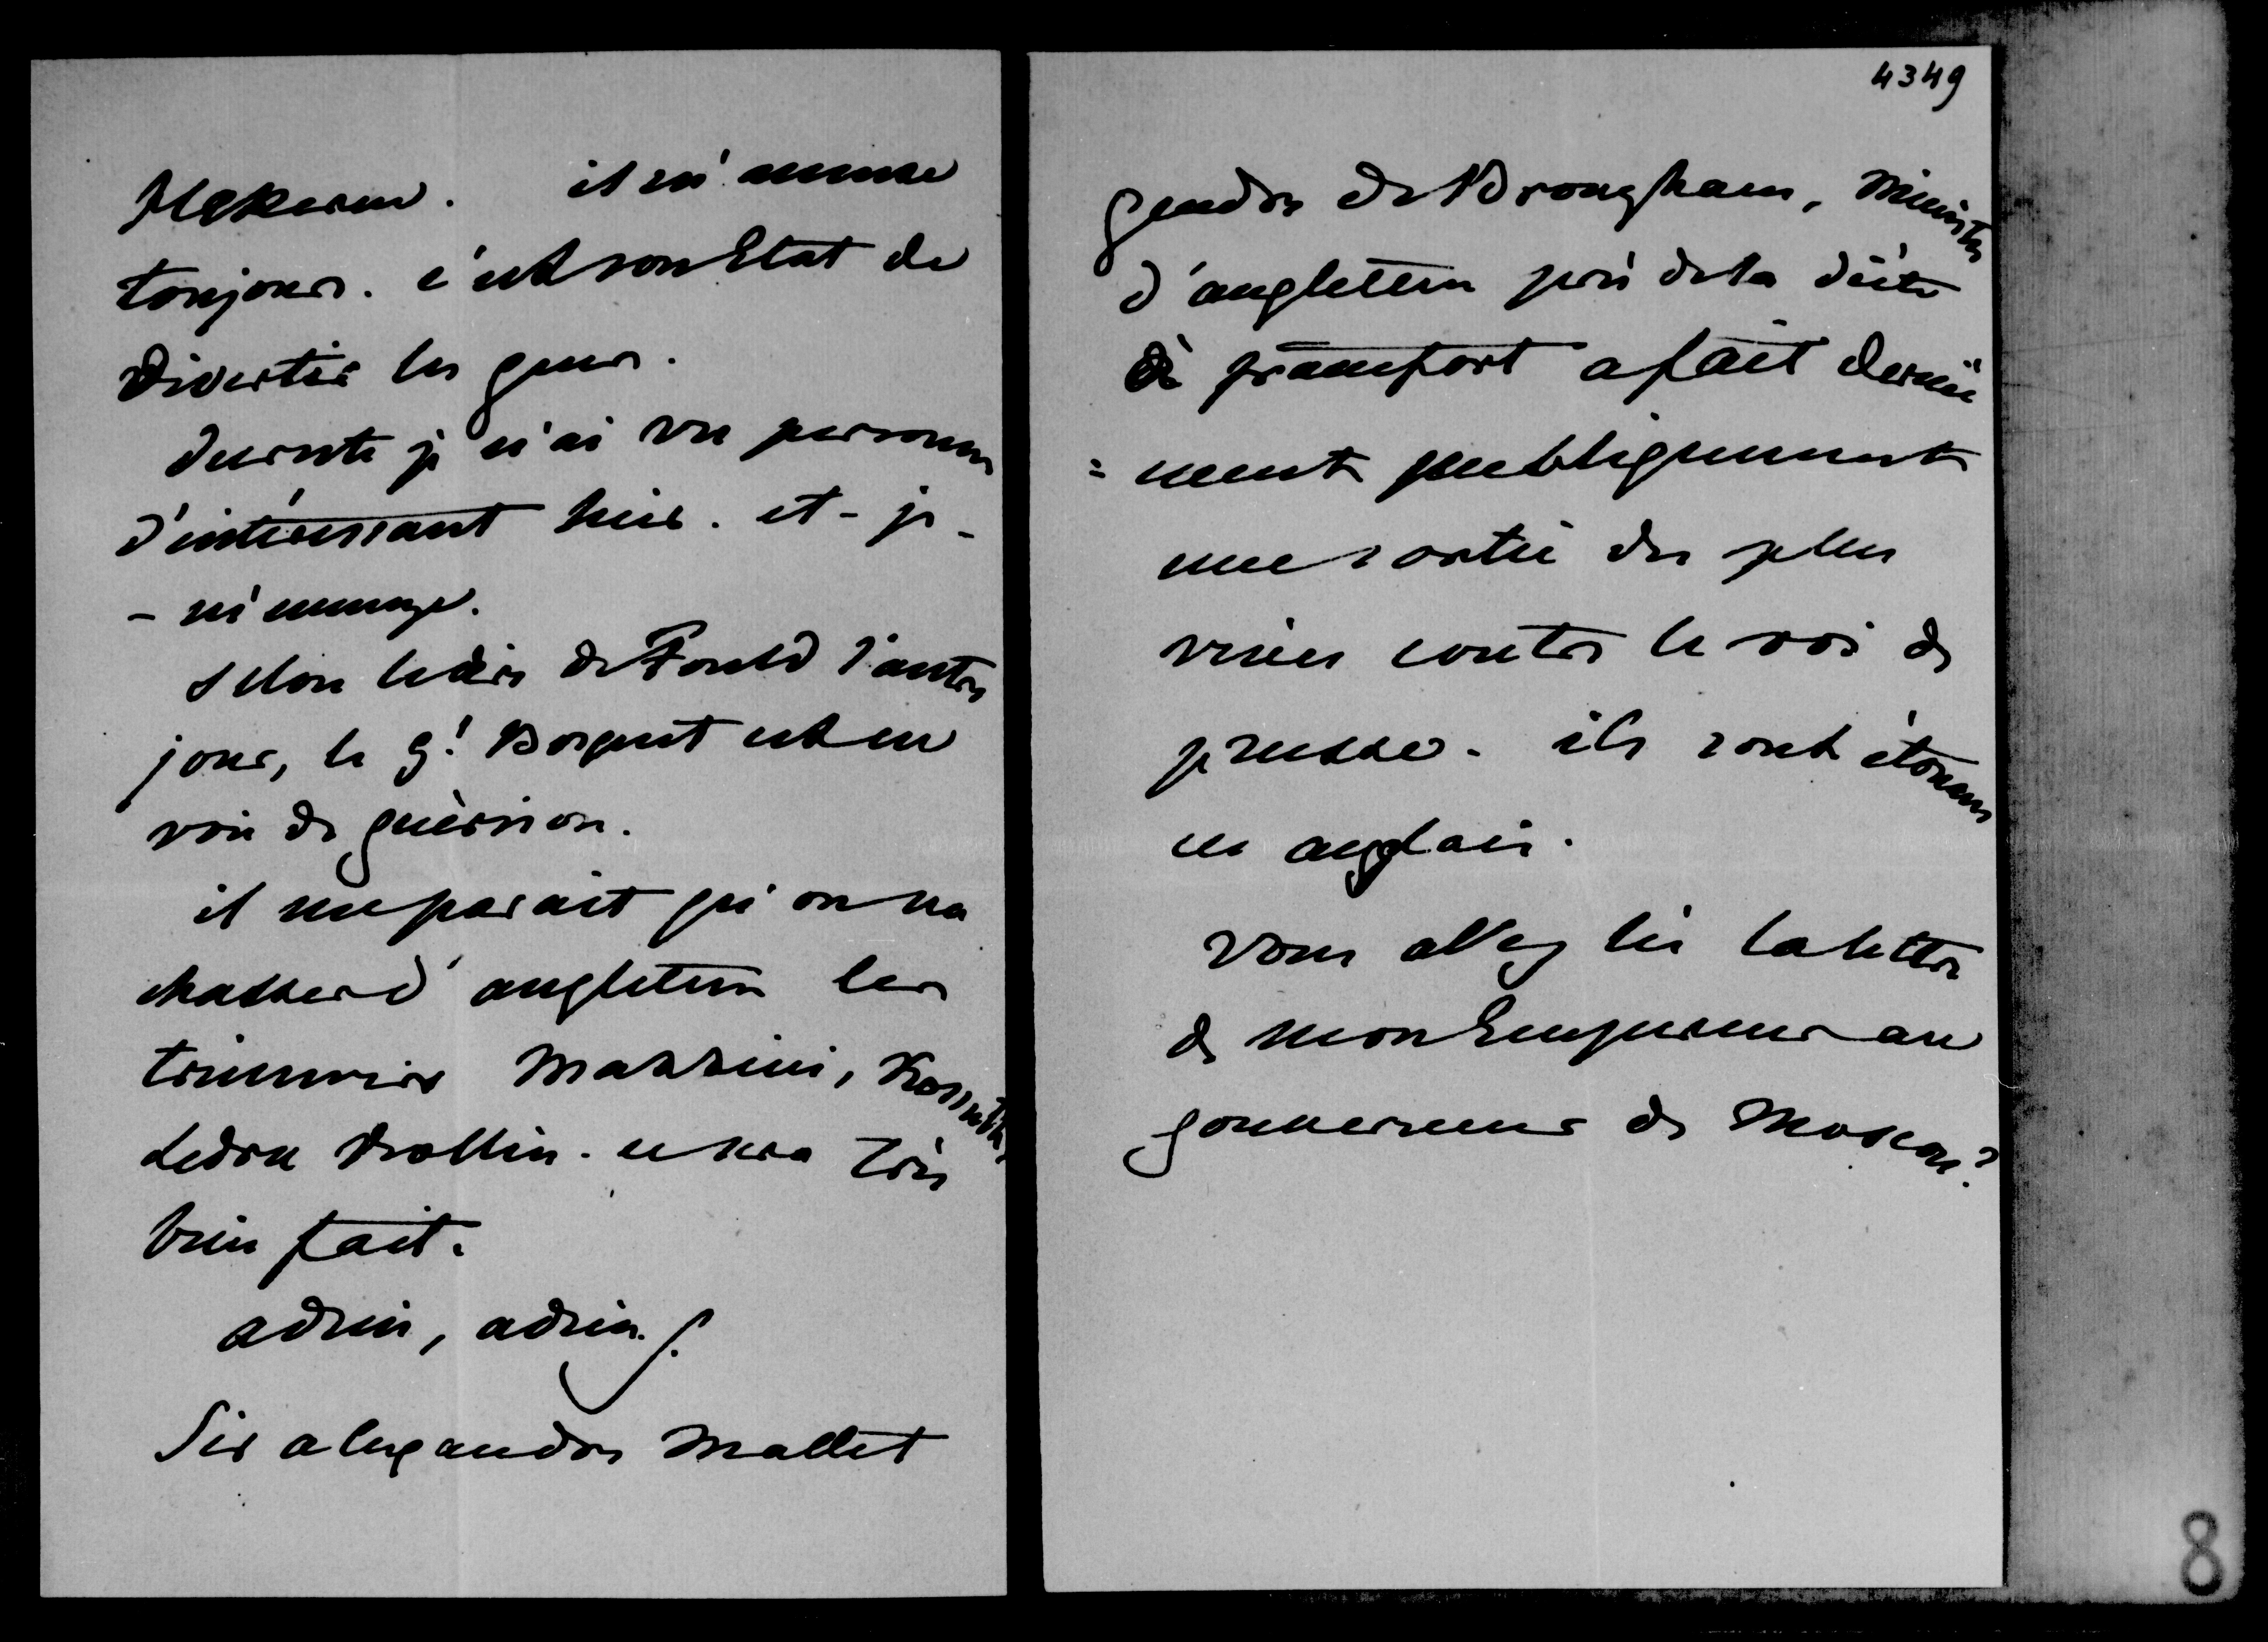 Hekern. il m'amuse
toujours. c'est son Etat de
divertir les gens.
du reste je n'ai vu personne
d'intéressant hier. et - je -
- m'ennuye.
selon le dire de Fould l'autre
jour, le gl. Bosquet est en
voie de guèrison.
il me parait qu'on va
chasser d'angleterre les
triumvirs Mazzini, Kossuth,
Ledru Rollin. ce sera très
bien fait.
adieu, adieu.
Sir alexandre Mallet
4349
gendre de Brougham, Ministre
d'angleterre près de la diète
de francfort a fait derniè
= ment publiquement
une sortie des plus
vives contre le roi de
prusse. ils sont étonnans
ces anglais.
vous avez lu la lettre
de mon Empereur au
gouverneur de Moscou?
8